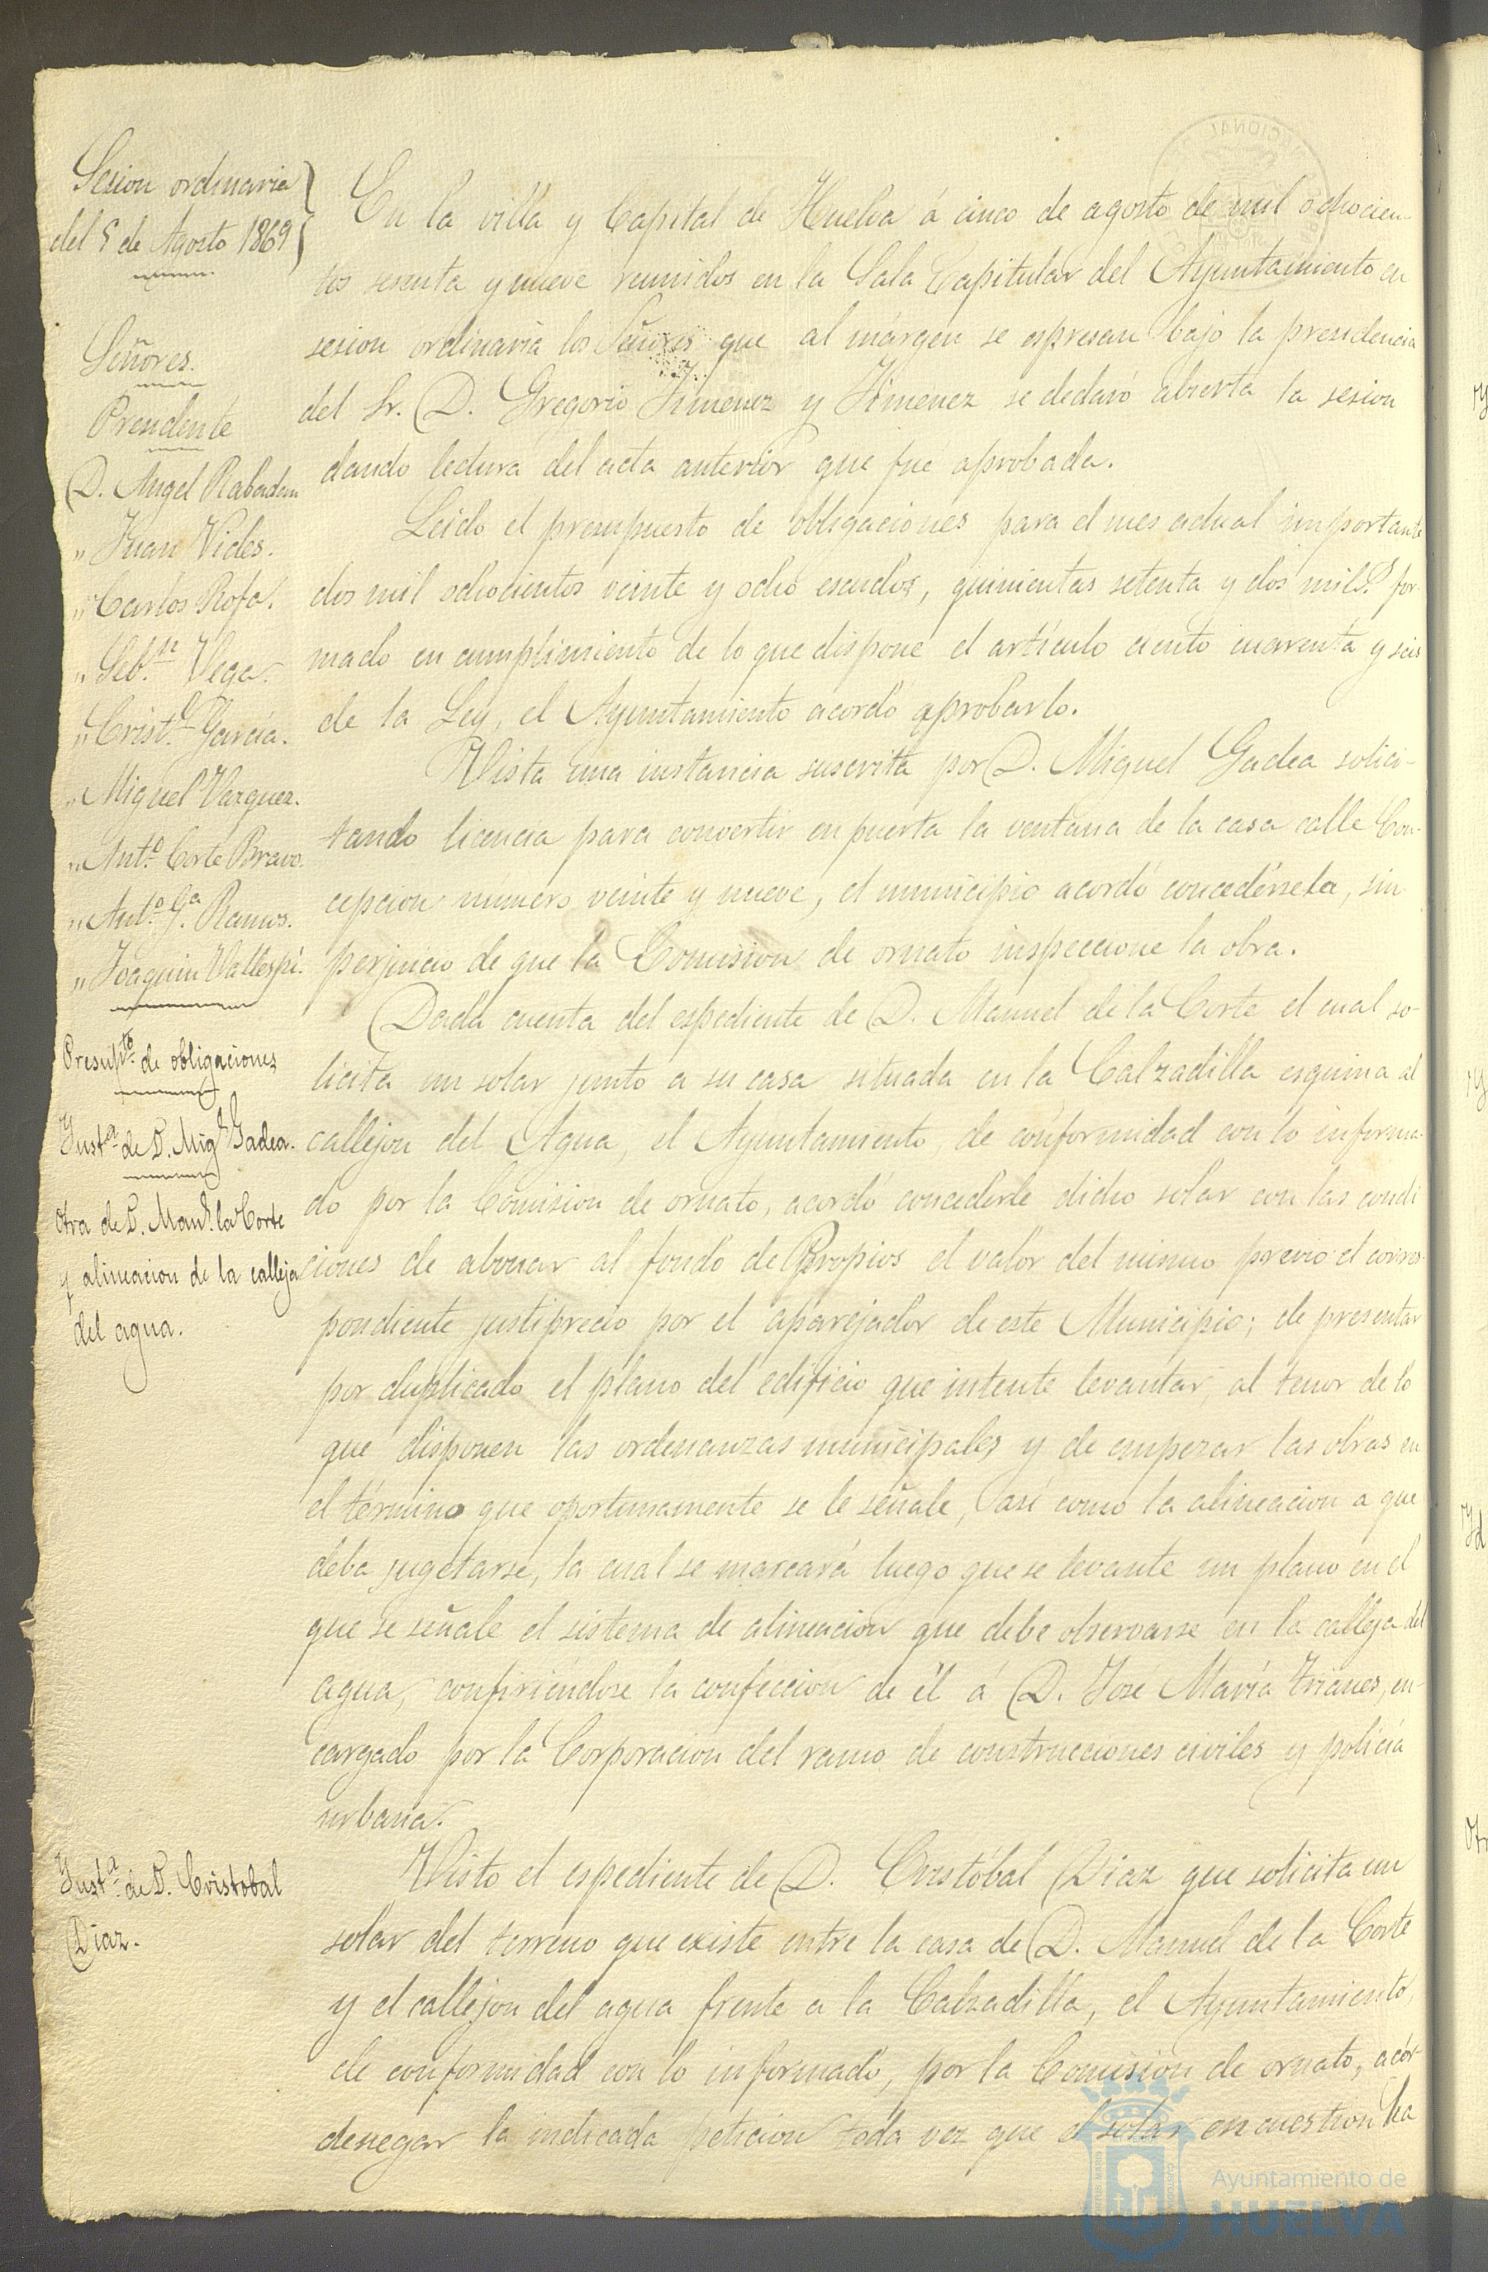 Sesion ordinaria
del 5 de Agosto 1869
Señores.
Presidente
D. Angel Rabadan
" Juan Vides.
" Carlos Rofa.
" Seb.n Vega.
" Crist.l García.
" Miguel Vazquez.
" Ant.o Corte Bravo.
" Ant.o G.a Ramos.
" Joaquin Vallespi.
Presup.to de obligaciones
Inst.a de D. Mig.l Gadea.
Otra de D. Man.l la Corte
y alineacion de la calleja
del agua.
Inst.a de D. Cristobal
Diaz.
En la villa y Capital de Huelva á cinco de agosto de mil ochocien-
tos sesenta y nueve reunidos en la Sala Capitular del Ayuntamiento en
sesion ordinaria los Señores que al márgen se espresan bajo la presidencia
del Sr. D. Gregorio Jimenez y Jimenez se declaró abierta la sesion
dando lectura del acta anterior que fué aprobada.
Leido el presupuesto de obligaciones para el mes actual importante
dos mil ochocientos veinte y ocho escudos, quinientas setenta y dos mil.s for-
mado en cumplimiento de lo que dispone el artículo ciento cuarenta y seis
de la Ley, el Ayuntamiento acordó aprobarlo.
Vista una instancia suscrita por D. Miguel Gadea solici-
tando licencia para convertir en puerta la ventana de la casa calle Con-
cepcion número veinte y nueve, el municipio acordó concedérsela, sin
perjuicio de que la Comision de ornato inspeccione la obra.
Dada cuenta del espediente de D. Manuel de la Corte el cual so-
licita un solar junto a su casa situada en la Calzadilla esquina al
callejon del Agua, el Ayuntamiento, de conformidad con lo informa-
do por la Comision de ornato, acordó concederle dicho solar con las condi
ciones de abonar al fondo de Propios el valor del mismo previo el corres-
pondiente justiprecio por el aparejador de este Municipio; de presentar
por duplicado el plano del edificio que intente levantar, al tenor de lo
que disponen las ordenanzas municipales y de empezar las obras en
el término que oportunamente se le señale, así como la alineacion a que
deba sugetarse, la cual se marcará luego que se levante un plano en el
que se señale el sistema de alineacion que debe observarse en la calleja del
agua, confiriéndose la confección de él á D. José María Trianes, en-
cargado por la Corporacion del ramo de construcciones civiles y policía
urbana.
Visto el espediente de D. Cristóbal Diaz que solicita un
solar del terreno que existe entre la casa de D. Manuel de la Corte
y el callejon del agua frente a la Calzadilla, el Ayuntamiento,
de conformidad con lo informado, por la Comision de ornato, acór-
denegar la indicada peticion toda vez que el solar en cuestion ha
Ayuntamiento de
HUELVA